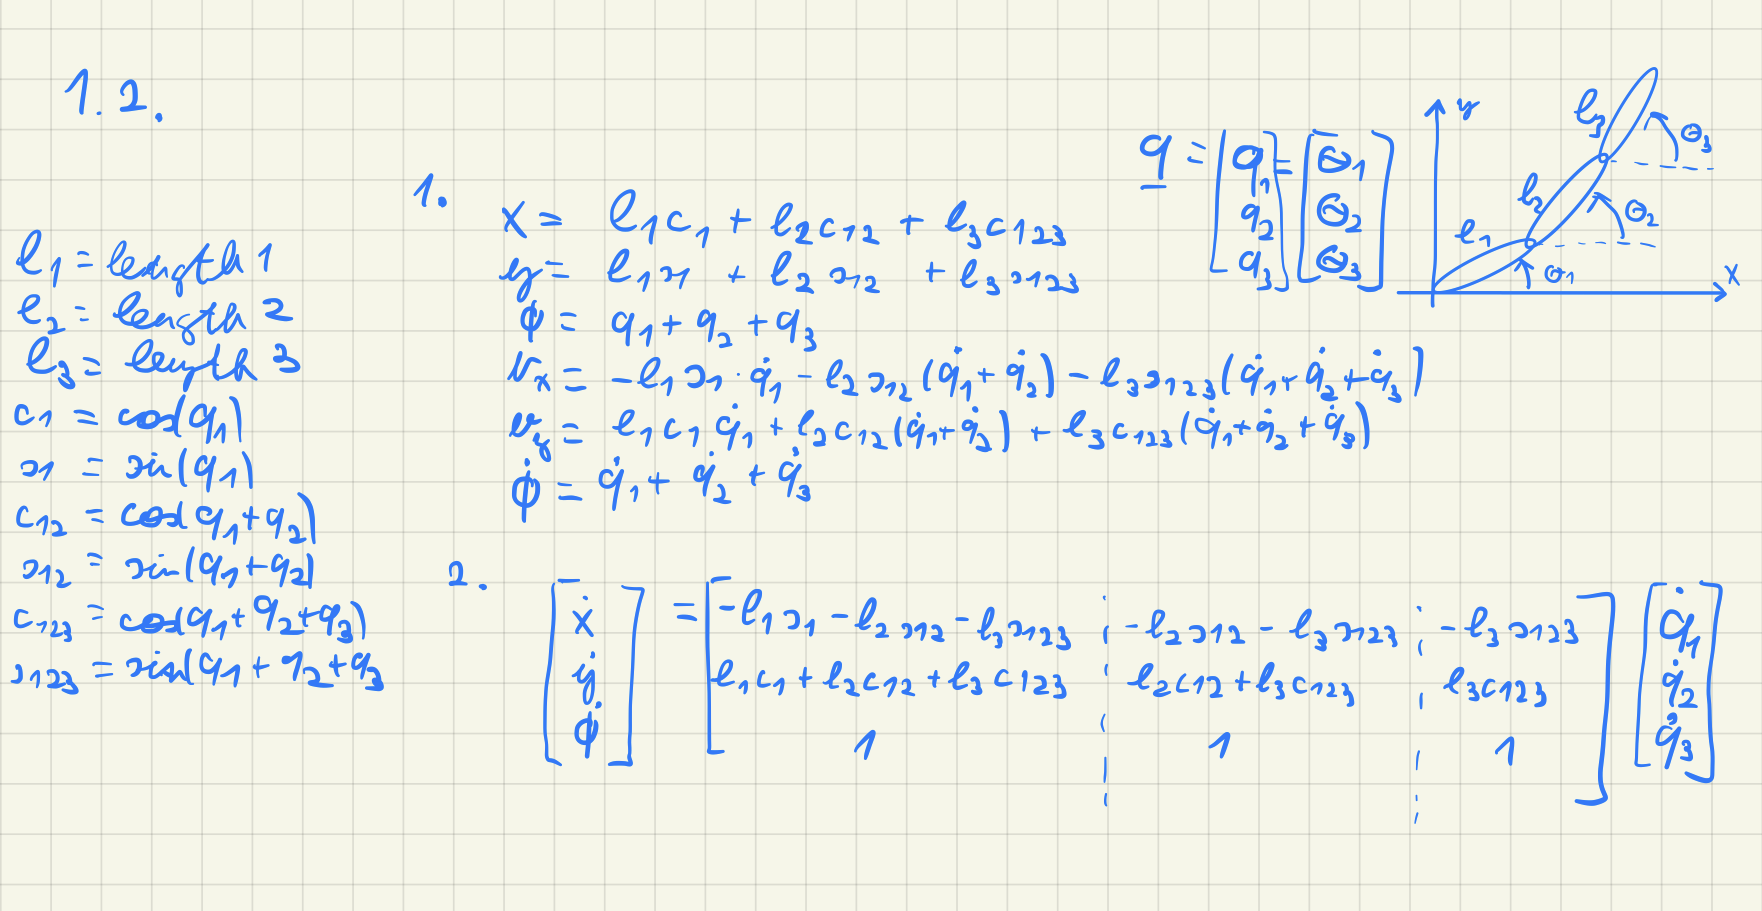 1.2.
l₁ = length 1
l₂ = length 2
l₃ = length 3
c1 = cos(q₁)
s1 = sin(q₁)
c₁₂ = cos(q₁+q₂)
s₁₂ = sin(q₁+q₂)
c₁₂₃ = cos(q₁+q₂+q₃)
s₁₂₃ = sin(q₁+q₂+q₃
1.
x = l₁c₁ + l₂c₁₂ + l₃c₁₂₃
y = l₁s₁ + l₂s₁₂ + l₃s₁₂₃
ϕ = q₁+q₂+q₃
v_x = -l₁s₁·q̇₁ - l₂s₁₂(q̇₁+q̇₂) - l₃s₁₂₃(q̇₁+q̇₂+q̇₃)
v_y = l₁c₁q̇₁ + l₂c₁₂(q̇₁+q̇₂) + l₃c₁₂₃(q̇₁+q̇₂+q̇₃)
ϕ̇ = q̇₁ + q̇₂ + q̇₃
q = [q₁ q₂ q₃] = [θ₁ θ₂ θ₃]
y
l₃
θ₃
l₂
θ₂
l₁
θ₁
x
2.
ẋ = -l₁s₁ - l₂s₁₂ - l₃s₁₂₃ -l₂s₁₂ - l₃s₁₂₃ -l₃s₁₂₃ q̇₁
ẏ l₁c₁ + l₂c₁₂ + l₃c₁₂₃ l₂c₁₂ + l₃c₁₂₃ l₃c₁₂₃ q̇₂
ϕ̇ 1 1 1 q̇₃